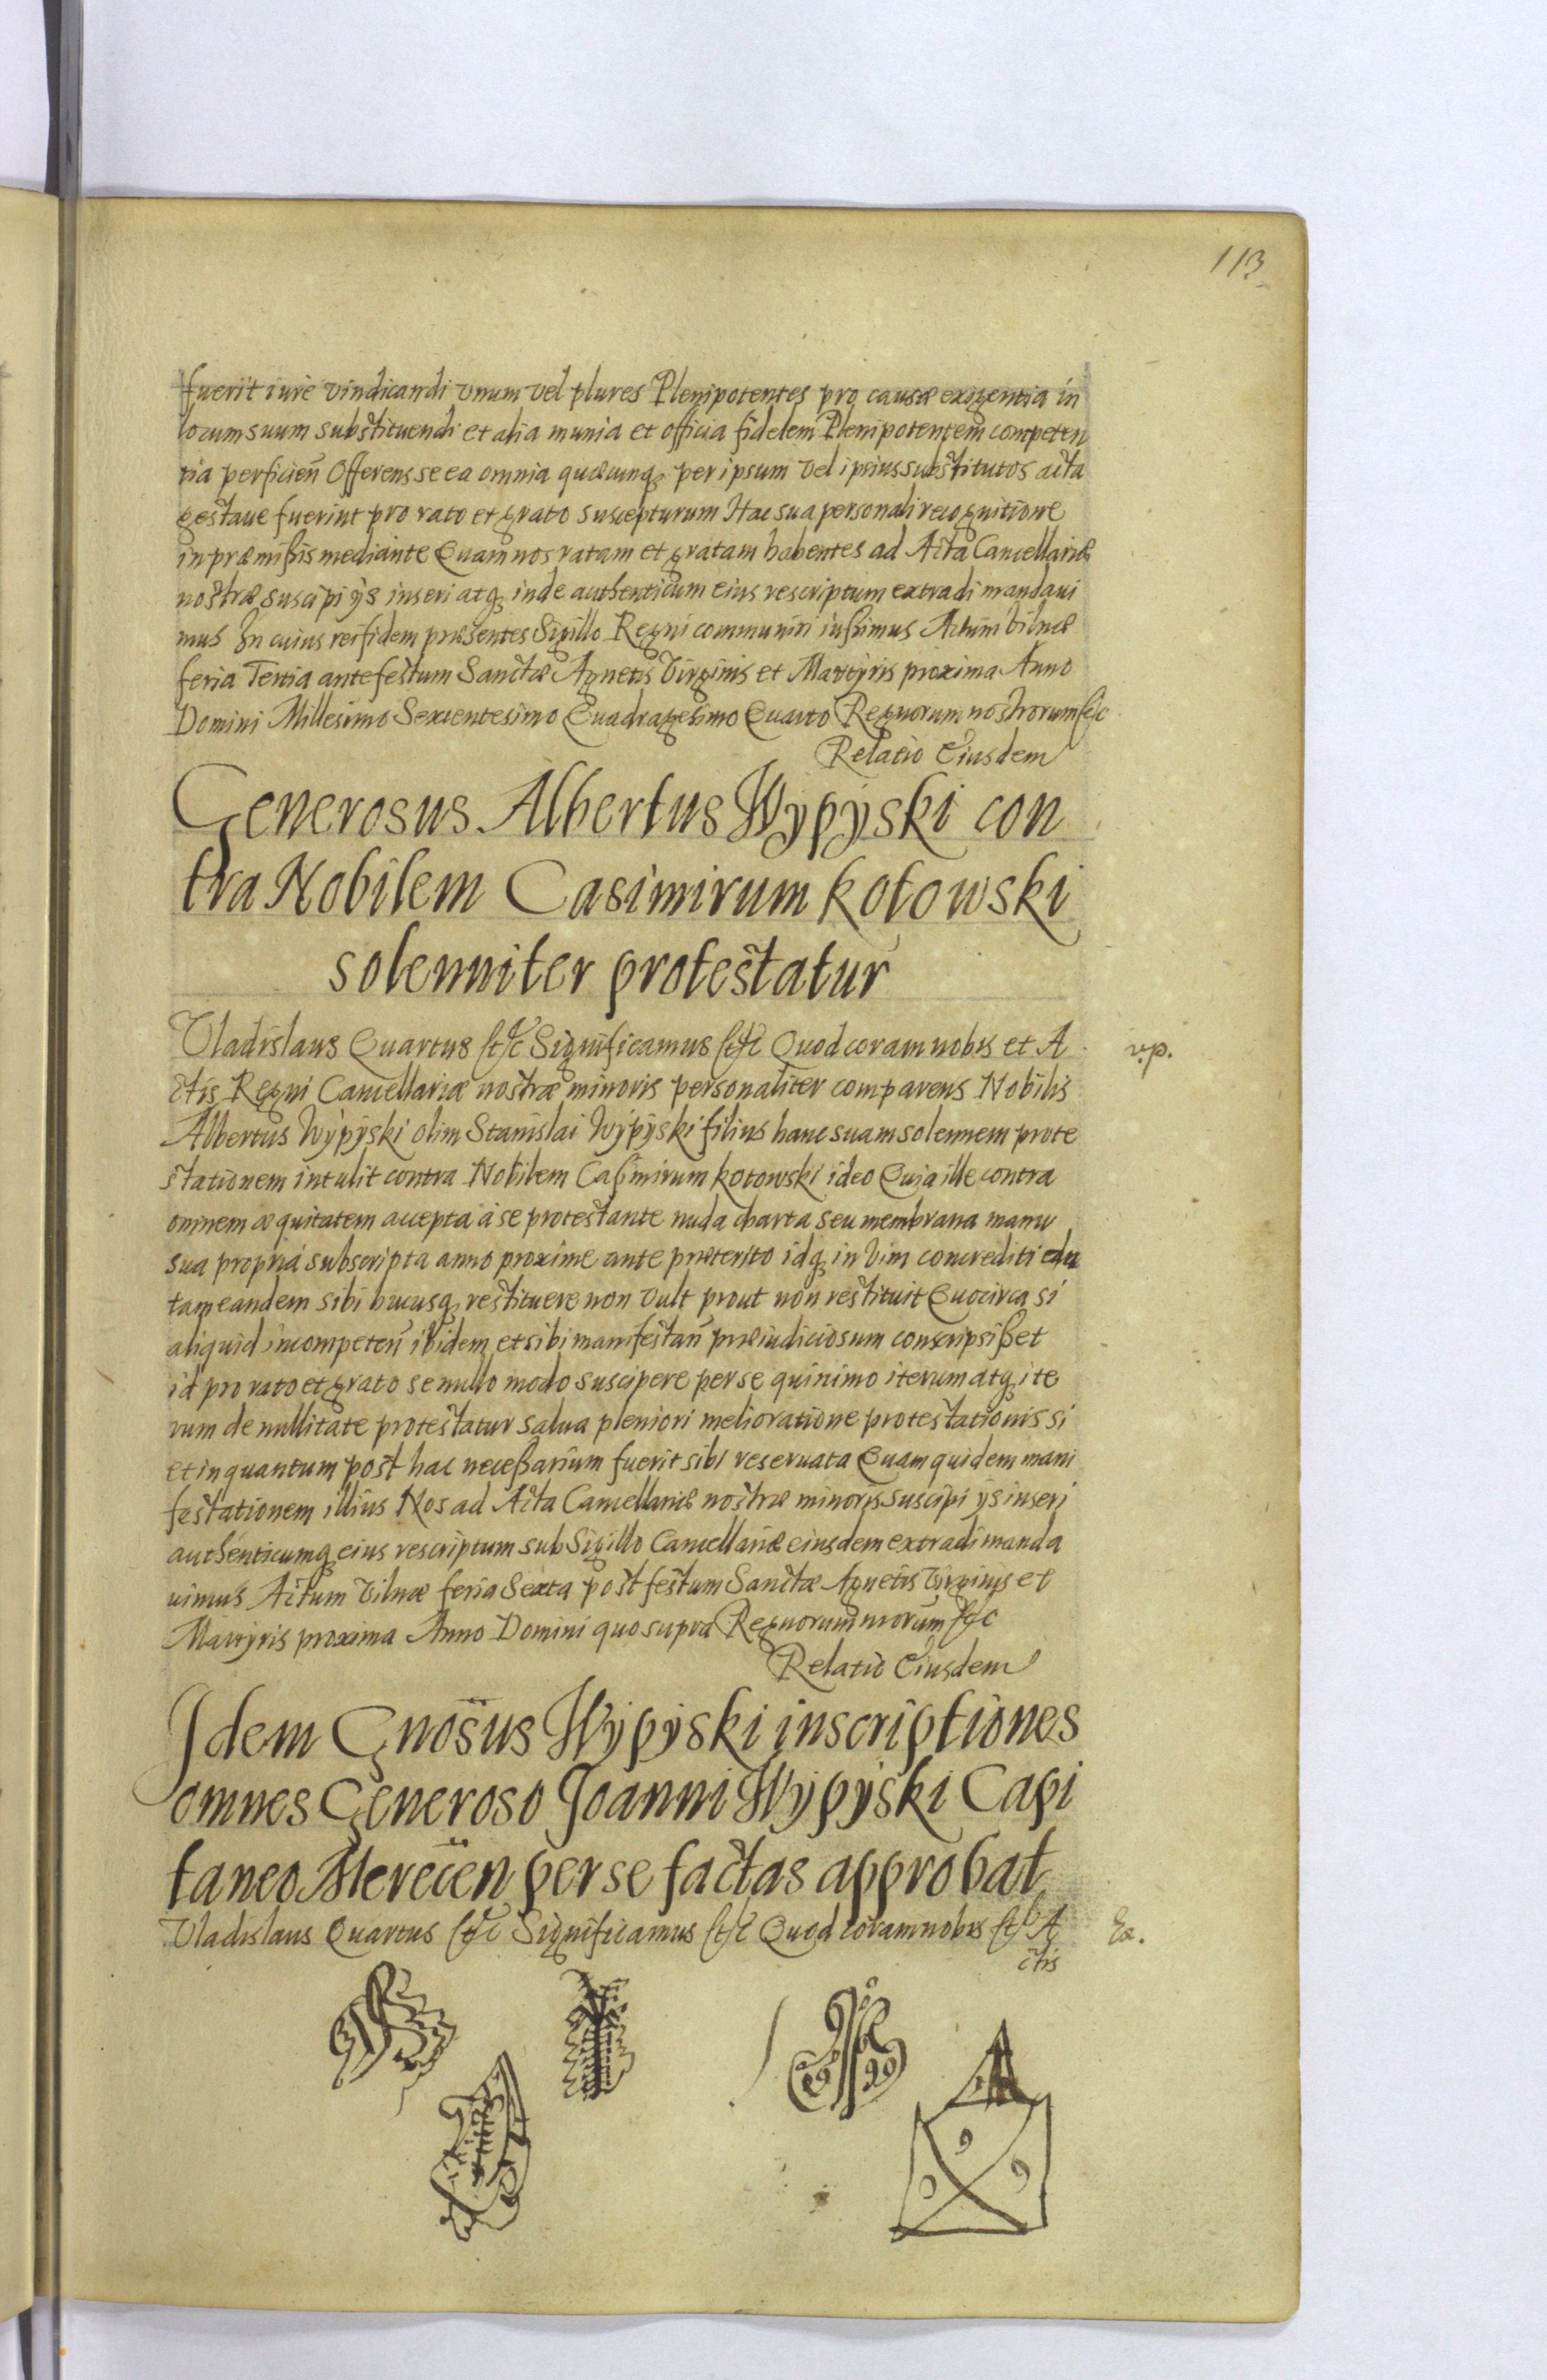 113
fuerit iure vindicandi vnum vel plures Plenipotentes pro causæ exigentia in
locum suum substituendi et alia munia et officia fidelem Plenipotentem competen
tia perficien̄ Offerens se ea omnia quæcunq₃ per ipsum vel ipsius substitutos acta
gestaue fuerint pro rato et grato suscepturum Hac sua personali recognitione
in præmißis mediante Quam nos ratam et gratam habentes ad Acta Cancellariæ
nostræ suscipi ÿs inseri atq₃ inde authenticum eius rescriptum extradi mandaui
mus In cuius rei fidem præsentes Sigillo Regni communiri iussimus Actum Vilnæ
feria Tertia ante festum Sanctæ Agnetis Virginis et Martyris proxima Anno
Domini Millesimo Sexcentesimo Quadragesimo Quarto Regnorum nostrorum &c
Relatio Eiusdem
Generosus Albertus Wÿpÿski con
tra Nobilem Casimirum Kotowski
solenniter protestatur
Vladislaus Quartus &c Significamus &c Quod coram nobis et A
v.p.
ctis Regni Cancellariæ nostræ minoris personaliter comparens Nobilis
Albertus Wÿpÿski olim Stanislai Wÿpÿski filius hanc suam solennem prote
stationem intulit contra Nobilem Casimirum Kotowski ideo Quia ille contra
omnem æquitatem accepta à se protestante nuda charta seu membrana manu
sua propria subscripta anno proxime ante præterito idq₃ in vim concrediti
tam eandem sibi hucusq₃ restituere non vult prout non restituit Quocirca si
aliquid incompeten̄ ibidem et sibi manifestan̄ præiudiciosum conscripsißet
id pro rato et grato se nullo modo suscipere per se quinimo iterum atq₃ ite
rum de nullitate protestatur salua pleniori melioratione protestationis si
et in quantum post hac neceßarium fuerit sibi reseruata Quam quidem mani
festationem illius Nos ad Acta Cancellariæ nostræ minoris suscipi ÿs inseri
authenticumq₃ eius rescriptum sub Sigillo Cancellariæ eiusdem extradi manda
uimus Actum Vilnæ feria Sexta post festum Sanctæ Agnetis Virginis et
Martyris proxima Anno Domini quo supra Regnorum nrorum &c
Relatio Eiusdem
Idem Gnosus Wÿpÿski inscriptiones
omnes Generoso Joanni Wÿpÿski Capi
taneo Merecen per se factas approbat
Vladislaus Quartus &c Significamus &c Quod coram nobis & A
Ex.
ctis